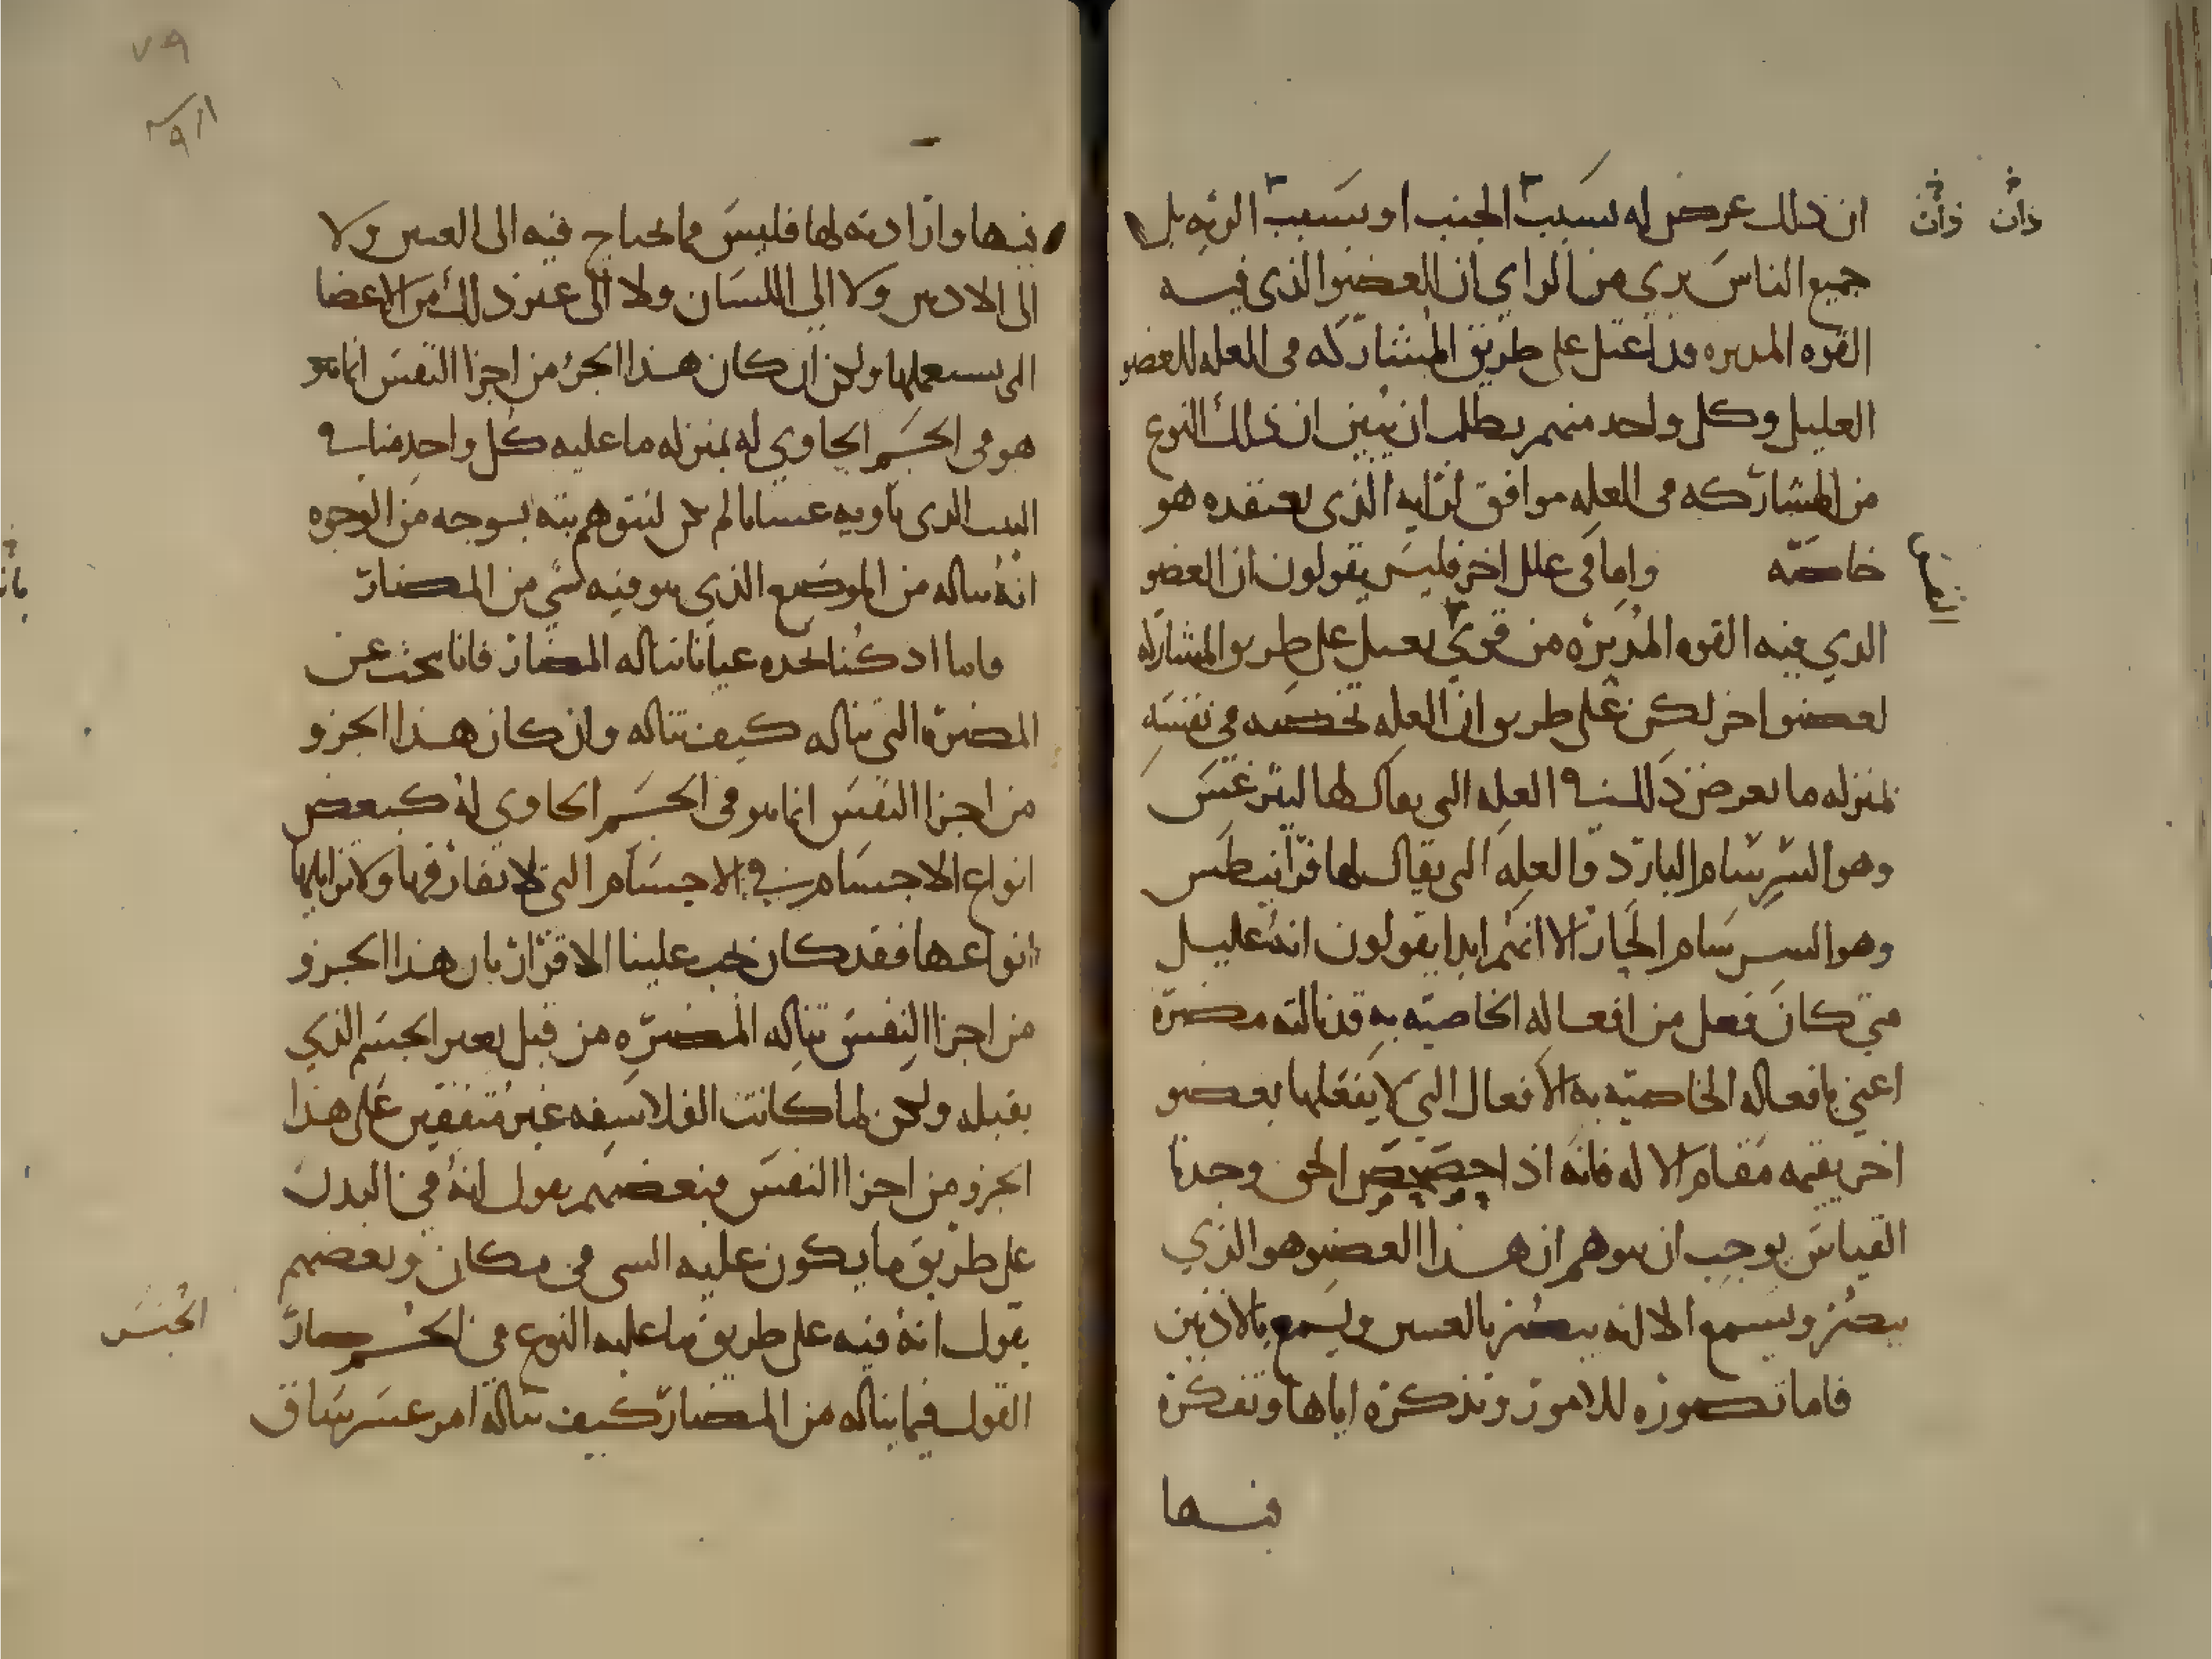 ان ذلك عرض له بسبب الجنب او بسبب الرئه بل
ذات ذات
جميع الناس يري من الراي ان العضو الذي فيه
القوه المدبره قد اعتل على طريق المشاركه في العله للعضو
العليل وكل واحد منهم يطلب ان يبين ان ذلك النوع
من المشاركه في العله موافق لرايه الذي يعتقده هو
خاصّه واما في علل اخر فليس يقولون ان العضو
الذي فيه القوه المدبره من قوي يعتل على طريق المشاركه
لعضو اخر لكن على طريق ان العله تخصه في نفسه
بمنزله ما يعرض ذلك في العله التي يقال لها ليثرغس
وهو السرسام البارد والعله التي يقال لها فرانيطس
وهو السرسام الحار الا انهم ابدا يقولون انه عليل
متي كان فعل من افعاله الخاصيه به قد نالته مضره
اعني بافعاله الخاصيه به الافعال التي لا يفعلها بعضو
اخر يقيمه مقام الاله فانه اذا حصحص الحق وجدنا
القياس يوجب ان يتوهم ان هذا العضو هو الذي
يبصر ويسمع الا انه يبصر بالعينين ويسمع بالاذنين
فاما تصوره للامور وتذكره اياها وتفكره
فيها
٧٩
فيها وارادته لها فليس مما يحتاج فيه الى العينين ولا
الى الاذنين ولا الى اللسان ولا الى غير ذلك من الاعضا
التي يستعملها ولكن ان كان هذا الجزء من اجزا النفس انما هو
هو في الجسم الحاوي له بمنزله ما عليه كل واحد منا في
البيت الذي ياويه عسانا لم نكن لنتوهم بته بوجه من الوجوه
انه يناله من الموضع الذي هو فيه شي من المضار
فاما اذ كنا نجده عيانا تناله المضار فانا نبحث عن
المضره التي تناله كيف تناله وان كان هذا الجزو
من اجزا النفس انما هو في الجسم الحاوي له كبعض
انواع الاجسام في الاجسام التي لا تفارقها ولا تزايلها
انواعها فقد كان يجب علينا الاقرار بان هذا الجزو
من اجزا النفس تناله المضره من قبل تغير الجسم الذي
يقبله ولكن لما كانت الفلاسفه غير متفقين على هذا
الجزو من اجزا النفس فبعضهم يقول انه في البدن
على طريق ما يكون عليه الشي في مكان وبعضهم
يقول انه فيه على طريق ما عليه النوع في الجسم صار
الجنس
القول فيما يناله من المضار كيف تناله امر عسر شاق